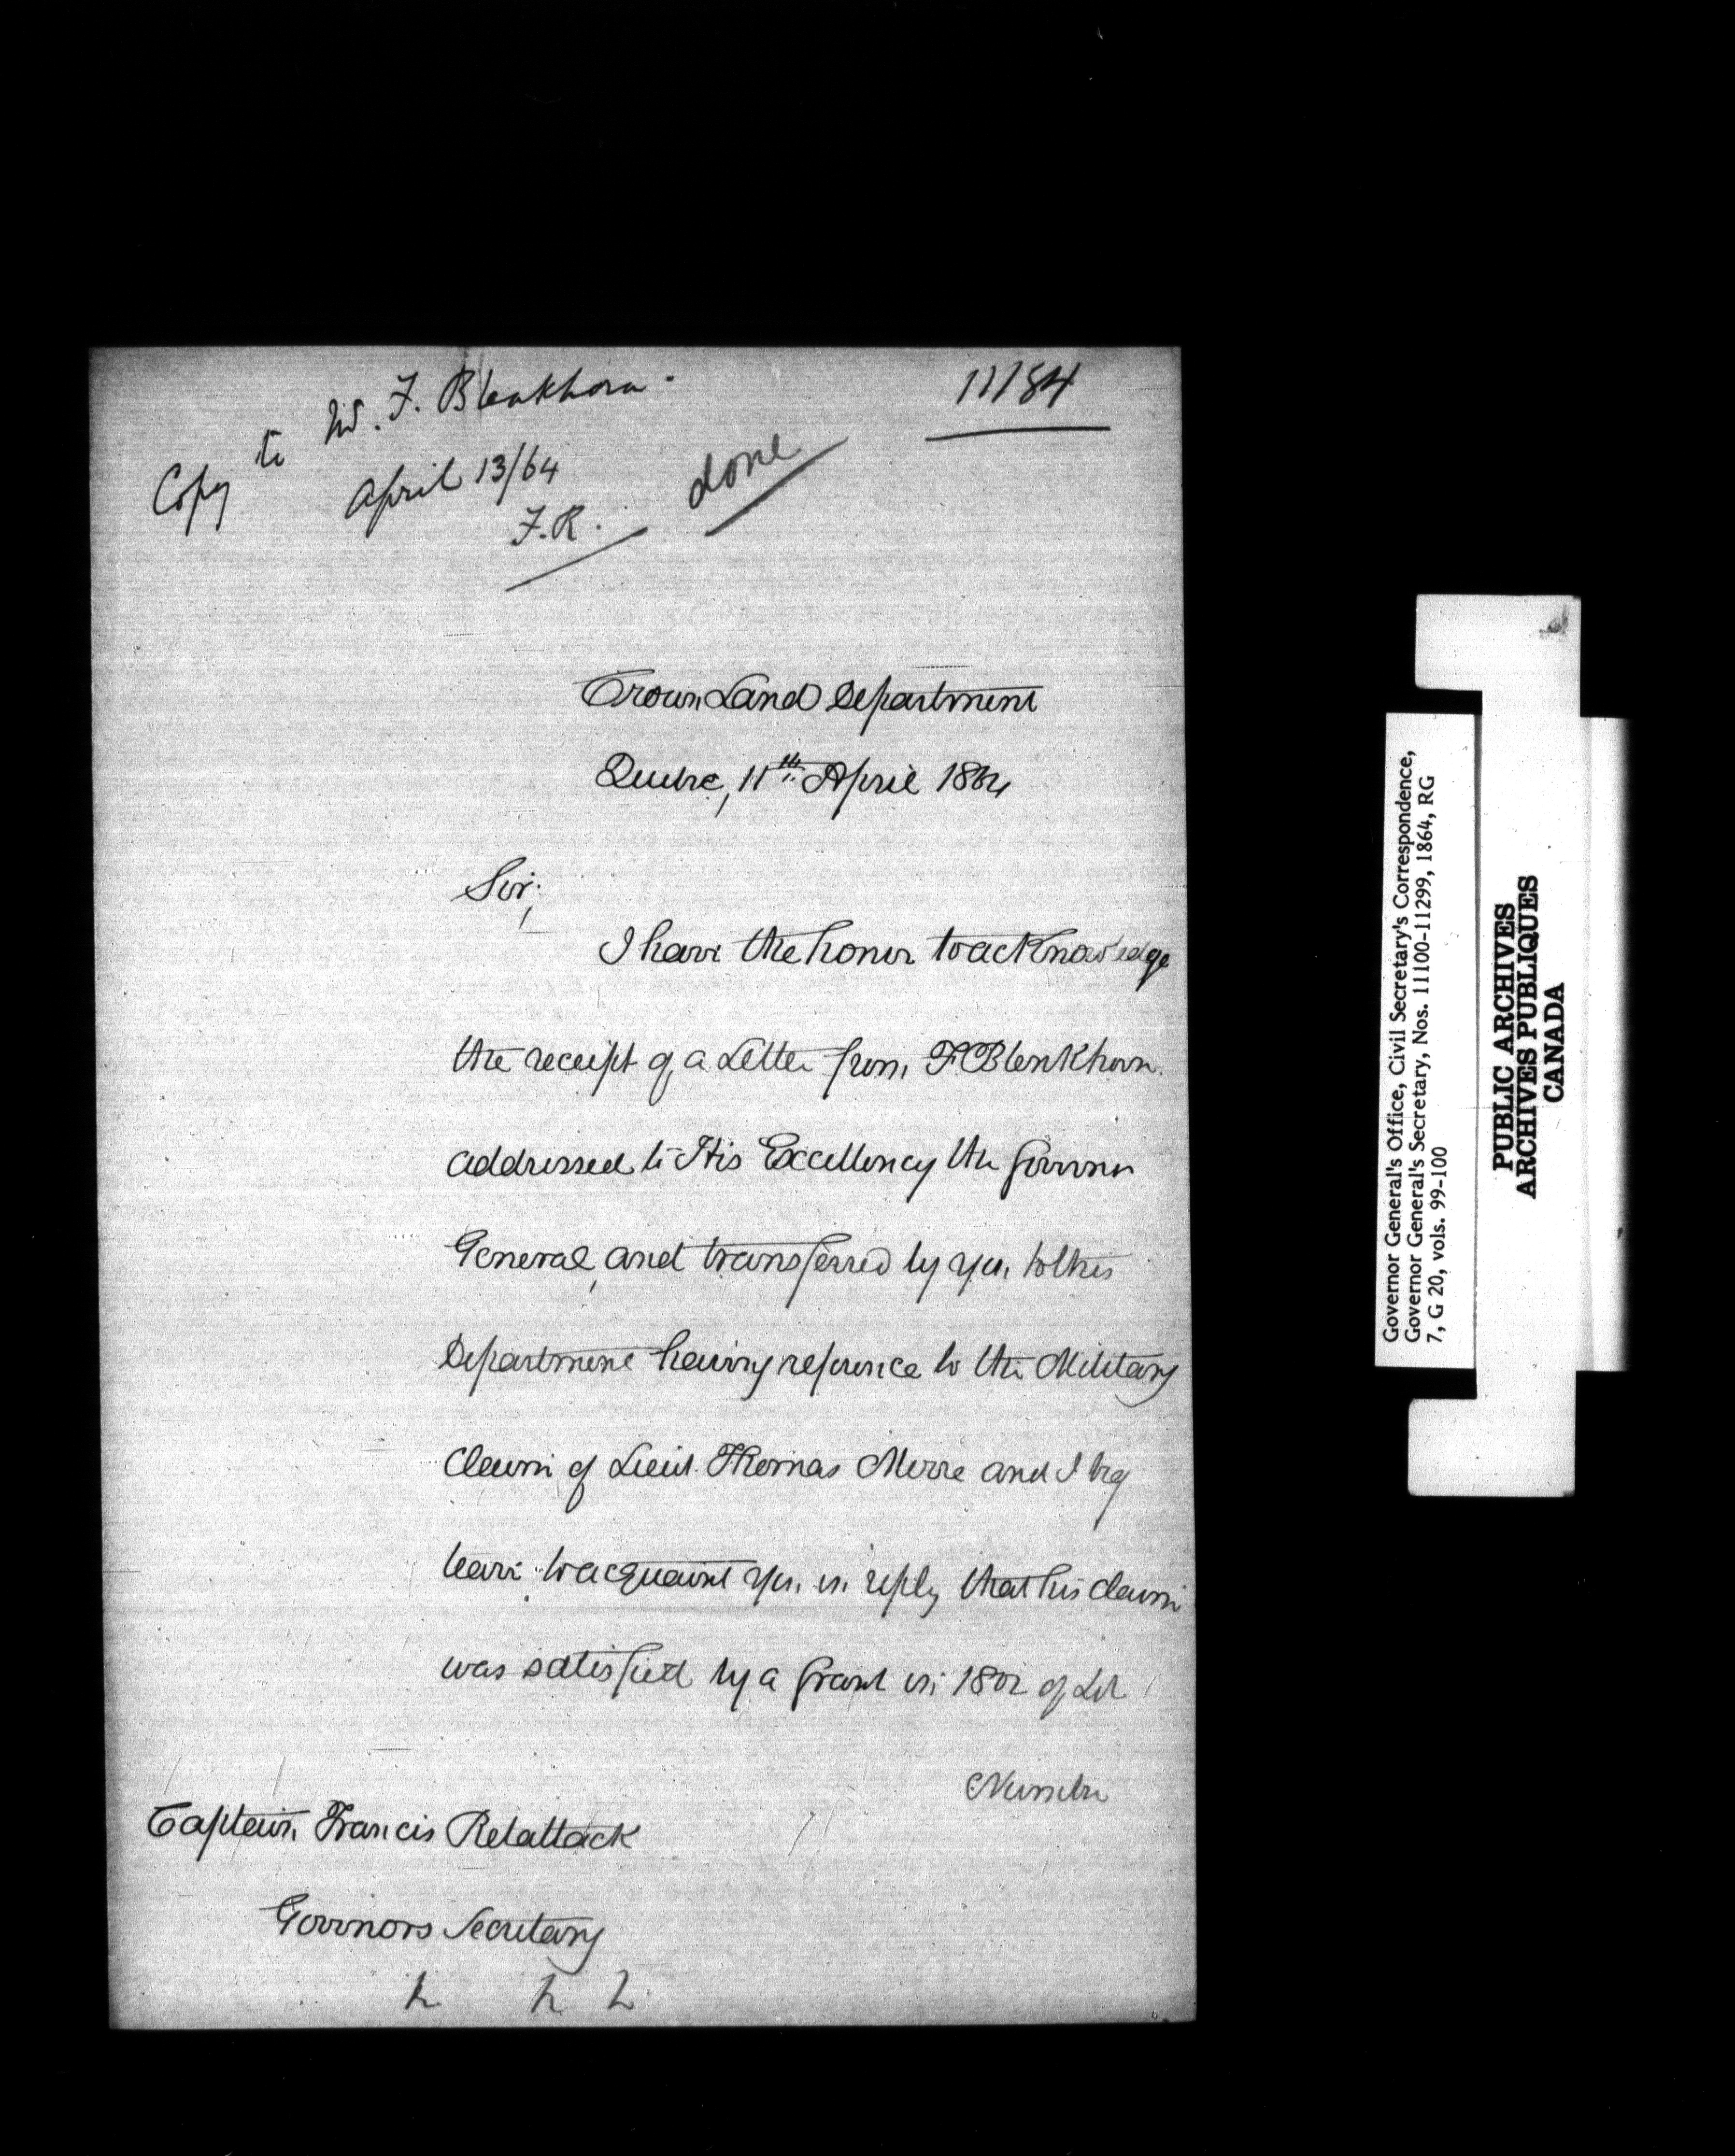 11184
Copy to W. F. Blenkhorn.
April 13/64
F.R.
done
Crown Land Department
Quebec, 11th April 1864
Sir,
I have the honor to acknowledge
the receipt of a Letter from F. Blenkhorn.
addressed to His Excellency the Governor
General, and transferred by you to this
Department having reference to the Military
Claim of Lieut. Thomas Merre and I beg
leave to acquaint you in reply that his claim
was satisfied by a Grant in 1802 of Lot
Number
Captain Francis Retallack
Governors Secretary
Governor General's Office, Civil Secretary's Correspondence,
Governor General's Secretary, Nos. 11100-11299, 1864, RG
7, G 20, vols. 99-100
PUBLIC ARCHIVES
ARCHIVES PUBLIQUES
CANADA